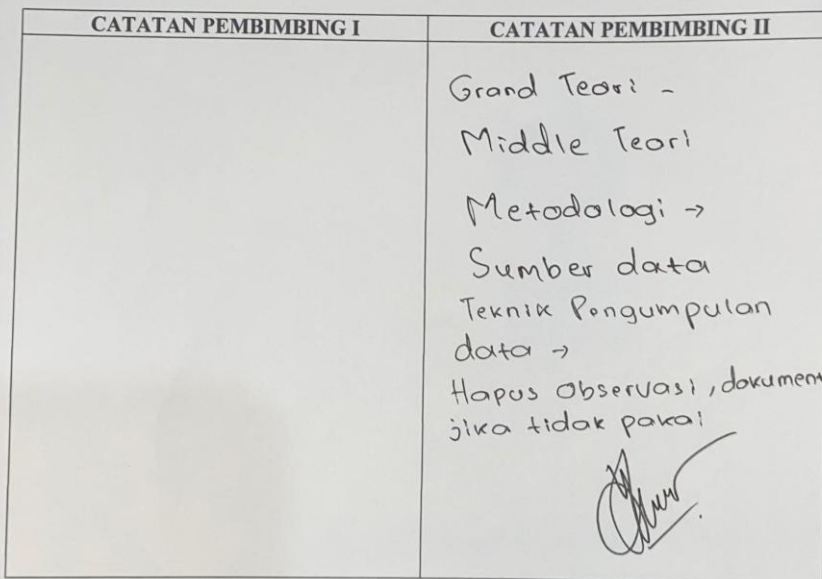 CATATAN PEMBIMBING I
CATATAN PEMBIMBING II
Grand Teori -
Middle Teori
Metodologi →
Sumber data
Teknik Pengumpulan
data →
Hapus Observasi, dokument
jika tidak pakai